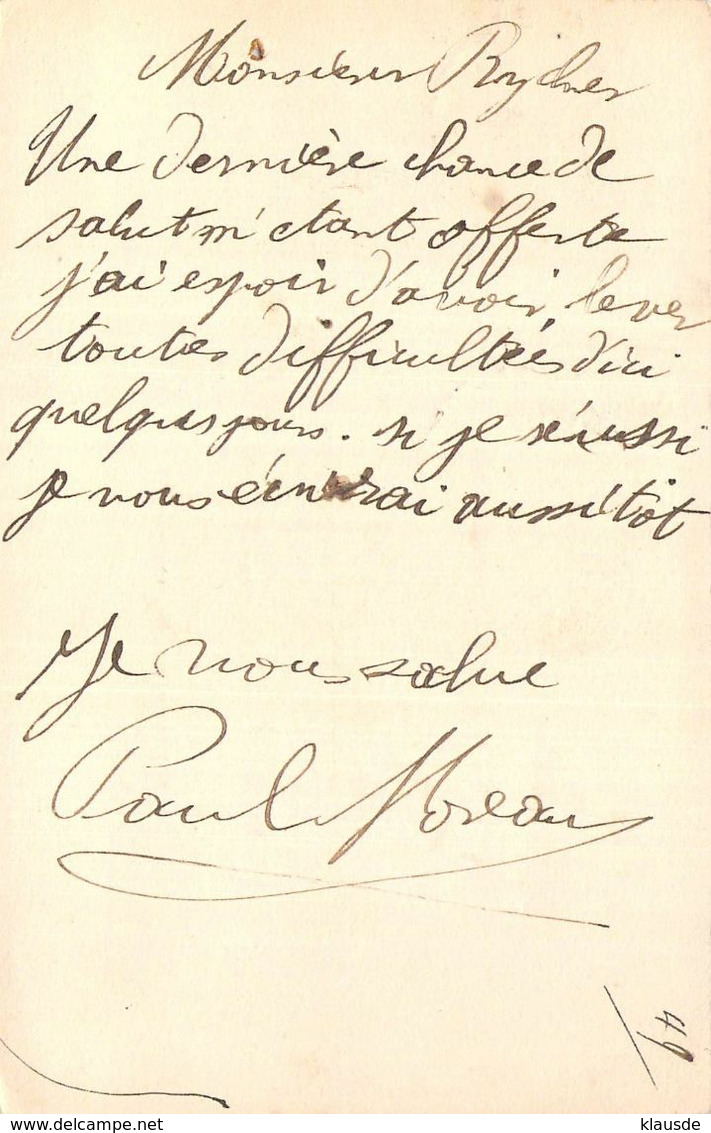 Monsieur Rycher
Une dernière chance de
salut m'étant offerte
j'ai espoir d'avoir lever
toutes difficultées d'ici
quelques jours. si je réussi
je vous écrirai aussitôt
Je vous salue
Paul Moreau
49
www.delcampe.net
klausde